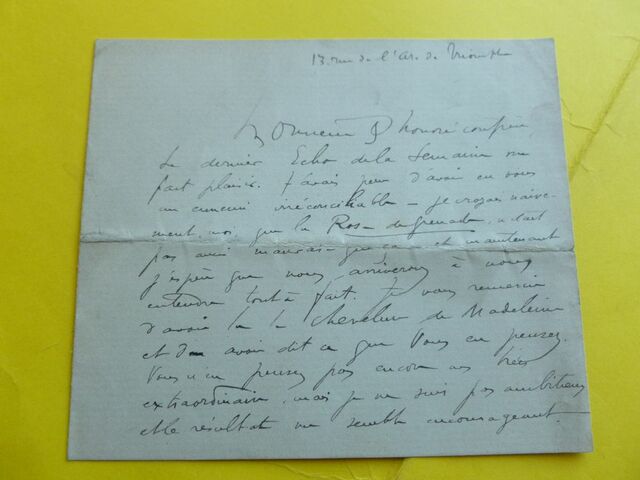 13. rue de l'Arc de Triomphe
Monsieur & honoré confrère,
Le dernier Echo de la Semaine me
fait plaisir. J'avais peur d'avoir en vous
un ennemi irréconciliable - je croyais naïve-
ment, moi, que la Rose de grenade, n'était
pas aussi mauvais que ça - et maintenant
j'espère que nous arriverons à nous
entendre tout à fait. Je vous remercie
d'avoir lu la Chevelure de Madeleine
et d'en avoir dit ce que vous en pensez.
Vous n'en pensez pas encore un bien
extraordinaire, mais je ne suis pas ambitieux
et le résultat me semble encourageant.